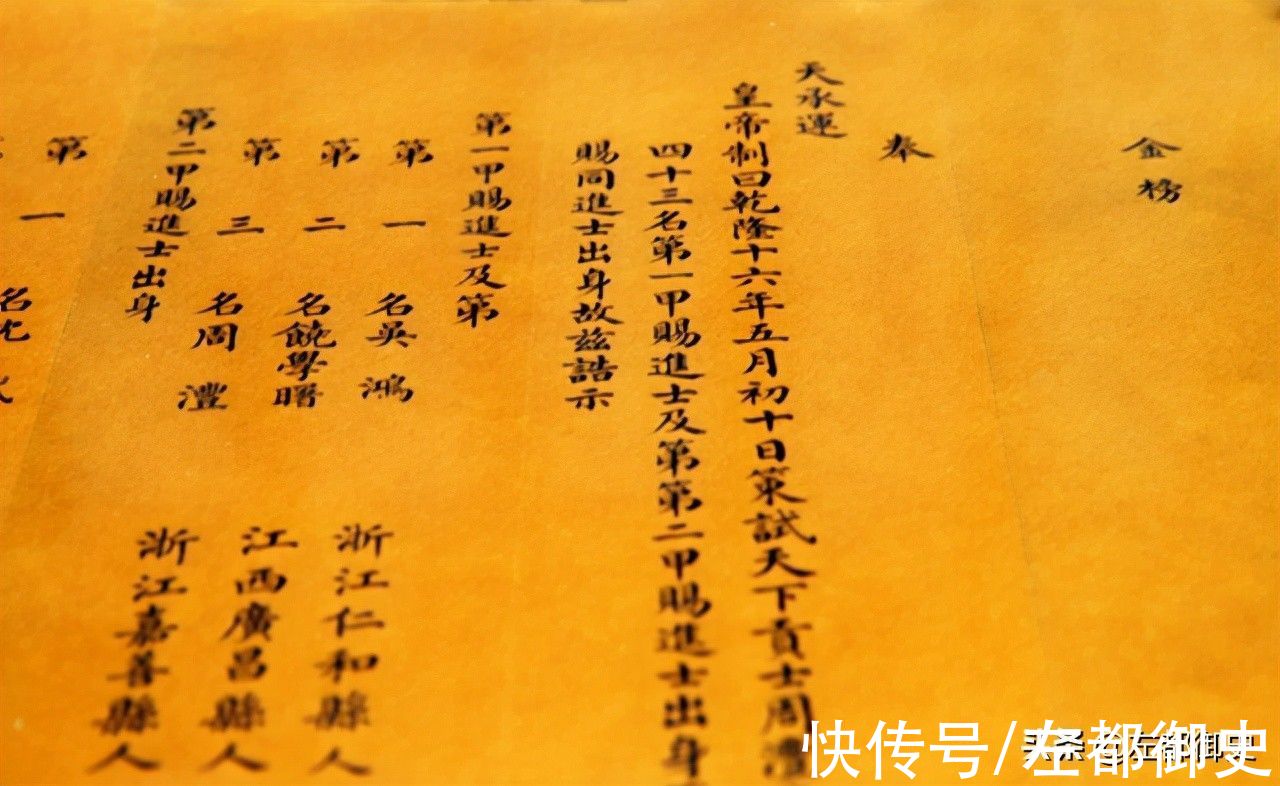 金榜
奉
天承運
皇帝制曰乾隆十六年五月初十日策試天下貢士周澧
四十三名第一甲賜進士及第第二甲賜進士出身
賜同進士出身故茲誥示
第一甲賜進士及第
第一名吳鴻 浙江仁和縣人
第二名饒學曙 江西廣昌縣人
第三名周灃 浙江嘉善縣人
第二甲賜進士出身
第一名沈
快传号/左都御史
头条 @左都御史